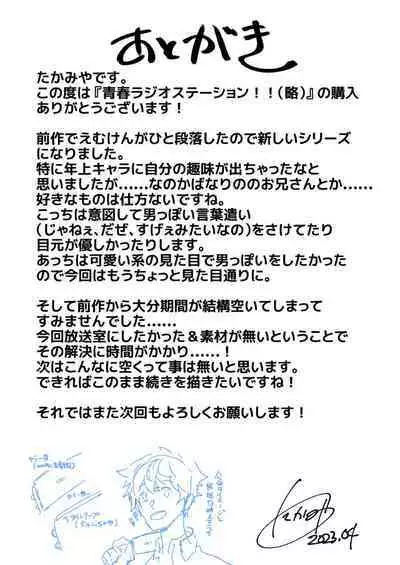 あとがき
たかみやです。
この度は『青春ラジオステーション！！(略)』の購入
ありがとうございます！
前作でえむけんがひと段落したので新しいシリーズ
になりました。
特に年上キャラに自分の趣味が出ちゃったなと
思いましたが……なのかばなりののお兄さんとか……
好きなものは仕方ないですね。
こっちは意図して男っぽい言葉遣い
(じゃねぇ、だぜ、すげぇみたいなの)をさけてたり
目元が優しかったりします。
あっちは可愛い系の見た目で男っぽいをしたかった
ので今回はもうちょっと見た目通りに。
そして前作から大分期間が結構空いてしまって
すみませんでした……
今回放送室にしたかった＆素材が無いということで
その解決に時間がかかり……！
次はこんなに空くって事は無いと思います。
できればこのまま続きを描きたいですね！
それではまた次回もよろしくお願いします！
2023.04